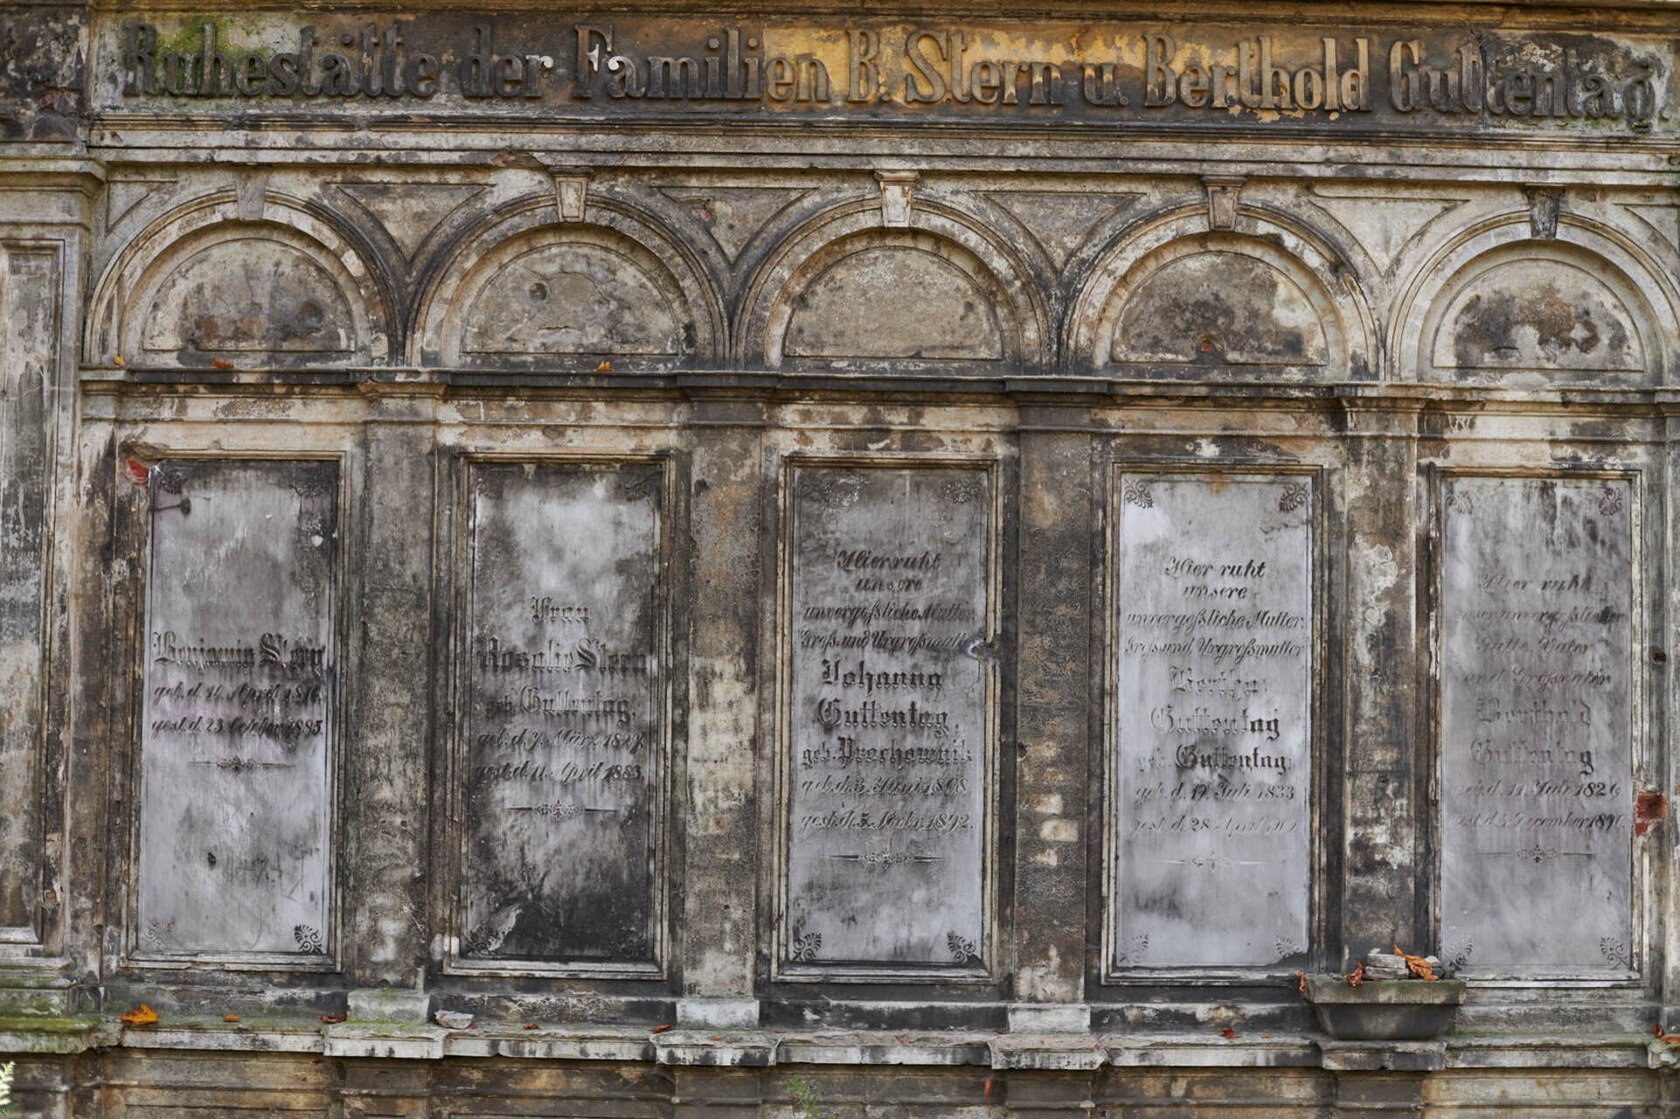 Ruhestätte der Familien B. Stern u. Berthold Guttentag.
Benjamin Stern
geb. d. 16. April 1816.
gest. d. 23. October 1885.
Frau
Rosalie Stern
geb. Guttentag,
geb. d. 7. März
gest. d. 11. April 1883.
Hier ruht
unsere
unvergeßliche Mutter
Groß und Urgroßmutter
Johanna
Guttentag,
geb. Prechownik
geb. d. 3. Juni
gest. d. 5. 1892.
Hier ruht
unsere
unvergeßliche Mutter
Gross und Urgroßmutter
Bertha
Guttentag
geb. Guttentag,
geb. d. 19. Juli 1833
gest. d. 28. April
Hier ruht
unser unvergeßlicher
Gatte Vater
und Großvater
Berthold
Guttentag
geb. d. 11. Juli 1826
gest. d. December